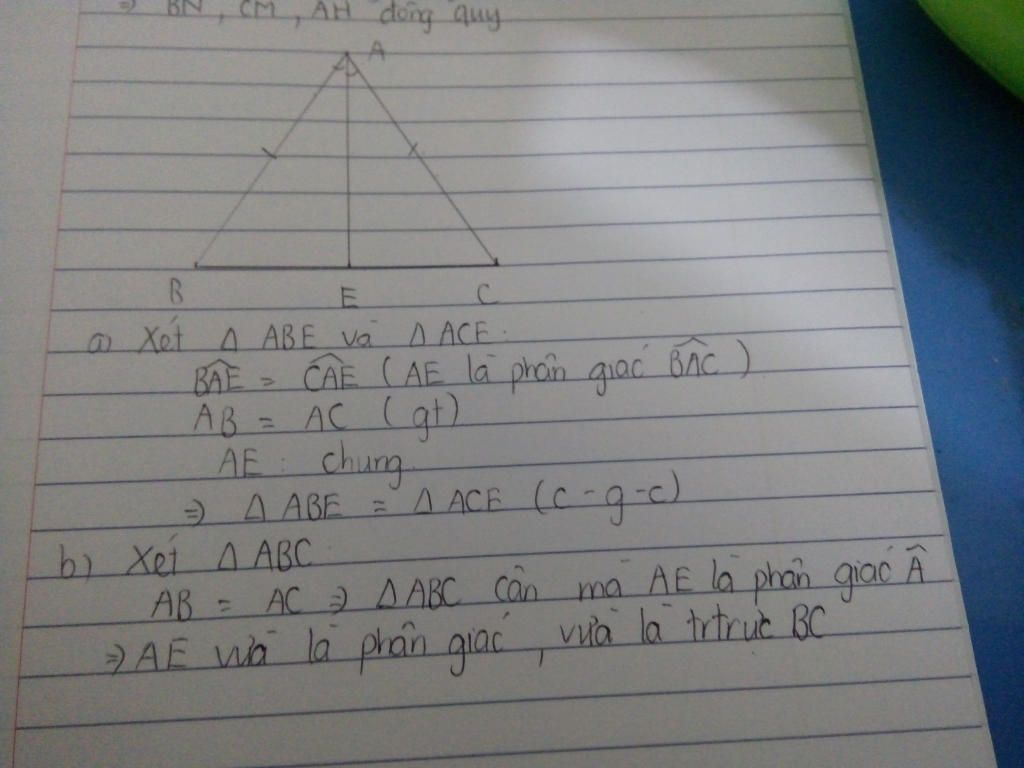 ⇒ BN, CM, AH đồng quy
A
B E C
a) Xét Δ ABE và Δ ACE:
BAE = CAE (AE là phân giác BAC)
AB = AC (gt)
AE: chung.
⇒ Δ ABE = Δ ACE (c-g-c)
b) Xét Δ ABC
AB = AC ⇒ ΔABC cân mà AE là phân giác Â
⇒ AE vừa là phân giác, vừa là trtrực BC